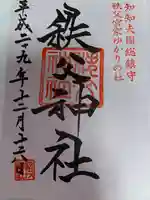 知知夫国総鎮守
秩父宮家ゆかりの社
秩父神社
平成二十九年十二月二十八日